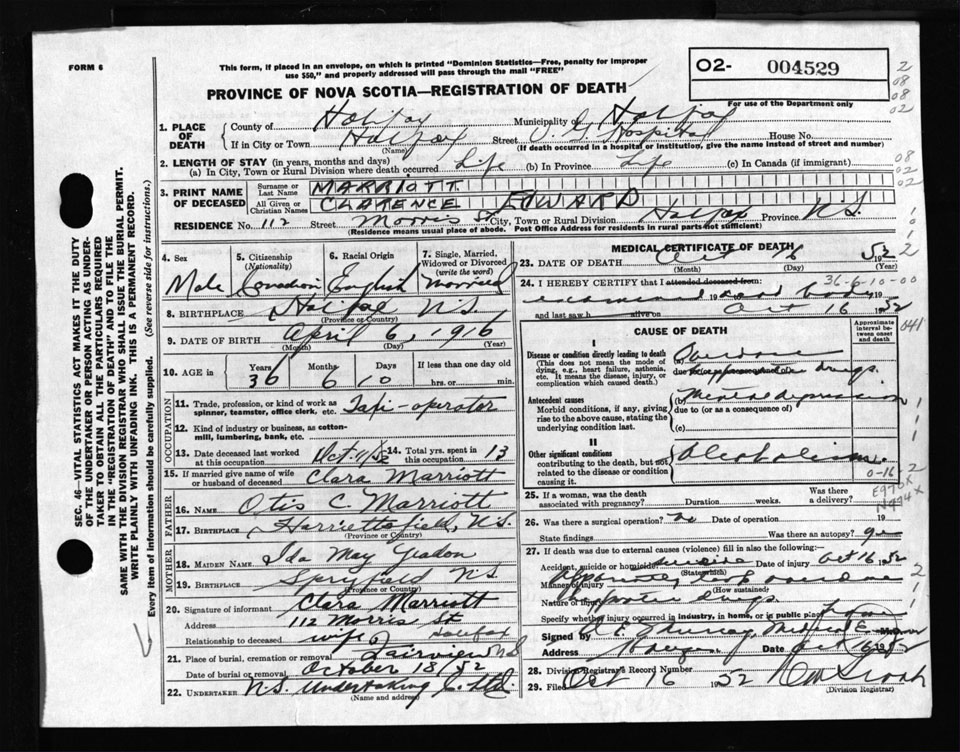 FORM 6
This form, if placed in an envelope, on which is printed "Dominion Statistics—Free, penalty for improper
use $50," and properly addressed will pass through the mail "FREE"
O2- 004529
PROVINCE OF NOVA SCOTIA—REGISTRATION OF DEATH
For use of the Department only
2
08
08
02
1. PLACE OF DEATH
County of Halifax Municipality of Halifax
If in City or Town Halifax Street V. G. Hospital House No.
(Name) (If death occurred in a hospital or institution, give the name instead of street and number)
2. LENGTH OF STAY (in years, months and days)
(a) In City, Town or Rural Division where death occurred Life (b) In Province Life (c) In Canada (if immigrant)
08
02
02
3. PRINT NAME OF DECEASED
Surname or Last Name MARRIOTT
All Given or Christian Names CLARENCE EDWARD
RESIDENCE No. 112 Street Morris St City, Town or Rural Division Halifax Province N.S.
(Residence means usual place of abode. Post Office Address for residents in rural parts not sufficient)
4. Sex
Male
5. Citizenship
(Nationality)
Canadian
6. Racial Origin
English
7. Single, Married, Widowed or Divorced
(write the word)
Married
8. BIRTHPLACE Halifax N.S.
(Province or Country)
9. DATE OF BIRTH April 6, 1916
(Month) (Day) (Year)
10. AGE in Years Months Days If less than one day old
36 6 10 hrs. or min.
OCCUPATION
11. Trade, profession or kind of work as
spinner, teamster, office clerk, etc. Taxi-operator
12. Kind of industry or business, as cotton-
mill, lumbering, bank, etc.
13. Date deceased last worked
at this occupation Oct. 11/52
14. Total yrs. spent in
this occupation 13
15. If married give name of wife
or husband of deceased Clara Marriott
FATHER
16. Name Otis C. Marriott
17. Birthplace Harriettsfield, N.S.
(Province or Country)
MOTHER
18. Maiden Name Ida May Yeadon
19. Birthplace Spryfield N.S
(Province or Country)
20. Signature of informant Clara Marriott
Address 112 Morris St
Halifax
Relationship to deceased wife
21. Place of burial, cremation or removal Fairview N.S
Date of burial or removal October 18/52
22. UNDERTAKER N.S. Undertaking Co. Ltd.
(Name and address)
MEDICAL CERTIFICATE OF DEATH
23. DATE OF DEATH Oct 16 1952
(Month) (Day) (Year)
24. I HEREBY CERTIFY that I attended deceased from
36-6-10-00
examined dead body
and last saw h alive on Oct 16 1952
041
CAUSE OF DEATH
Approximate interval between onset and death
I
Disease or condition directly leading to death
(This does not mean the mode of dying, e.g., heart failure, asthenia, etc. It means the disease, injury, or complication which caused death.)
(a) Overdose
due to drugs.
Antecedent causes
Morbid conditions, if any, giving rise to the above cause, stating the underlying condition last.
(b) Mental depression
due to (or as a consequence of)
(c)
II
Other significant conditions
contributing to the death, but not related to the disease or condition causing it.
Alcoholism.
0-16-2
E970x
N974x
25. If a woman, was the death
associated with pregnancy? Duration weeks. Was there a delivery?
26. Was there a surgical operation? no Date of operation 19
State findings Was there an autopsy?
27. If death was due to external causes (violence) fill in also the following:—
Accident, suicide or homicide suicide Date of injury Oct 16 1952
(State which)
Manner of injury Apparently took overdose
(How sustained)
Nature of injury drugs.
Specify whether injury occurred in industry, in home, or in public place
Signed by Murray, Medical E
Address Date Oct 16 1952
28. Division Registrar's Record Number
29. Filed Oct 16 1952
(Division Registrar)
SEC. 46—VITAL STATISTICS ACT MAKES IT THE DUTY
OF THE UNDERTAKER OR PERSON ACTING AS UNDER-
TAKER TO OBTAIN ALL THE PARTICULARS REQUIRED
IN THE "REGISTRATION OF DEATH" AND TO FILE THE
SAME WITH THE DIVISION REGISTRAR WHO SHALL ISSUE THE BURIAL PERMIT.
WRITE PLAINLY WITH UNFADING INK. THIS IS A PERMANENT RECORD.
Every item of information should be carefully supplied. (See reverse side for instructions.)